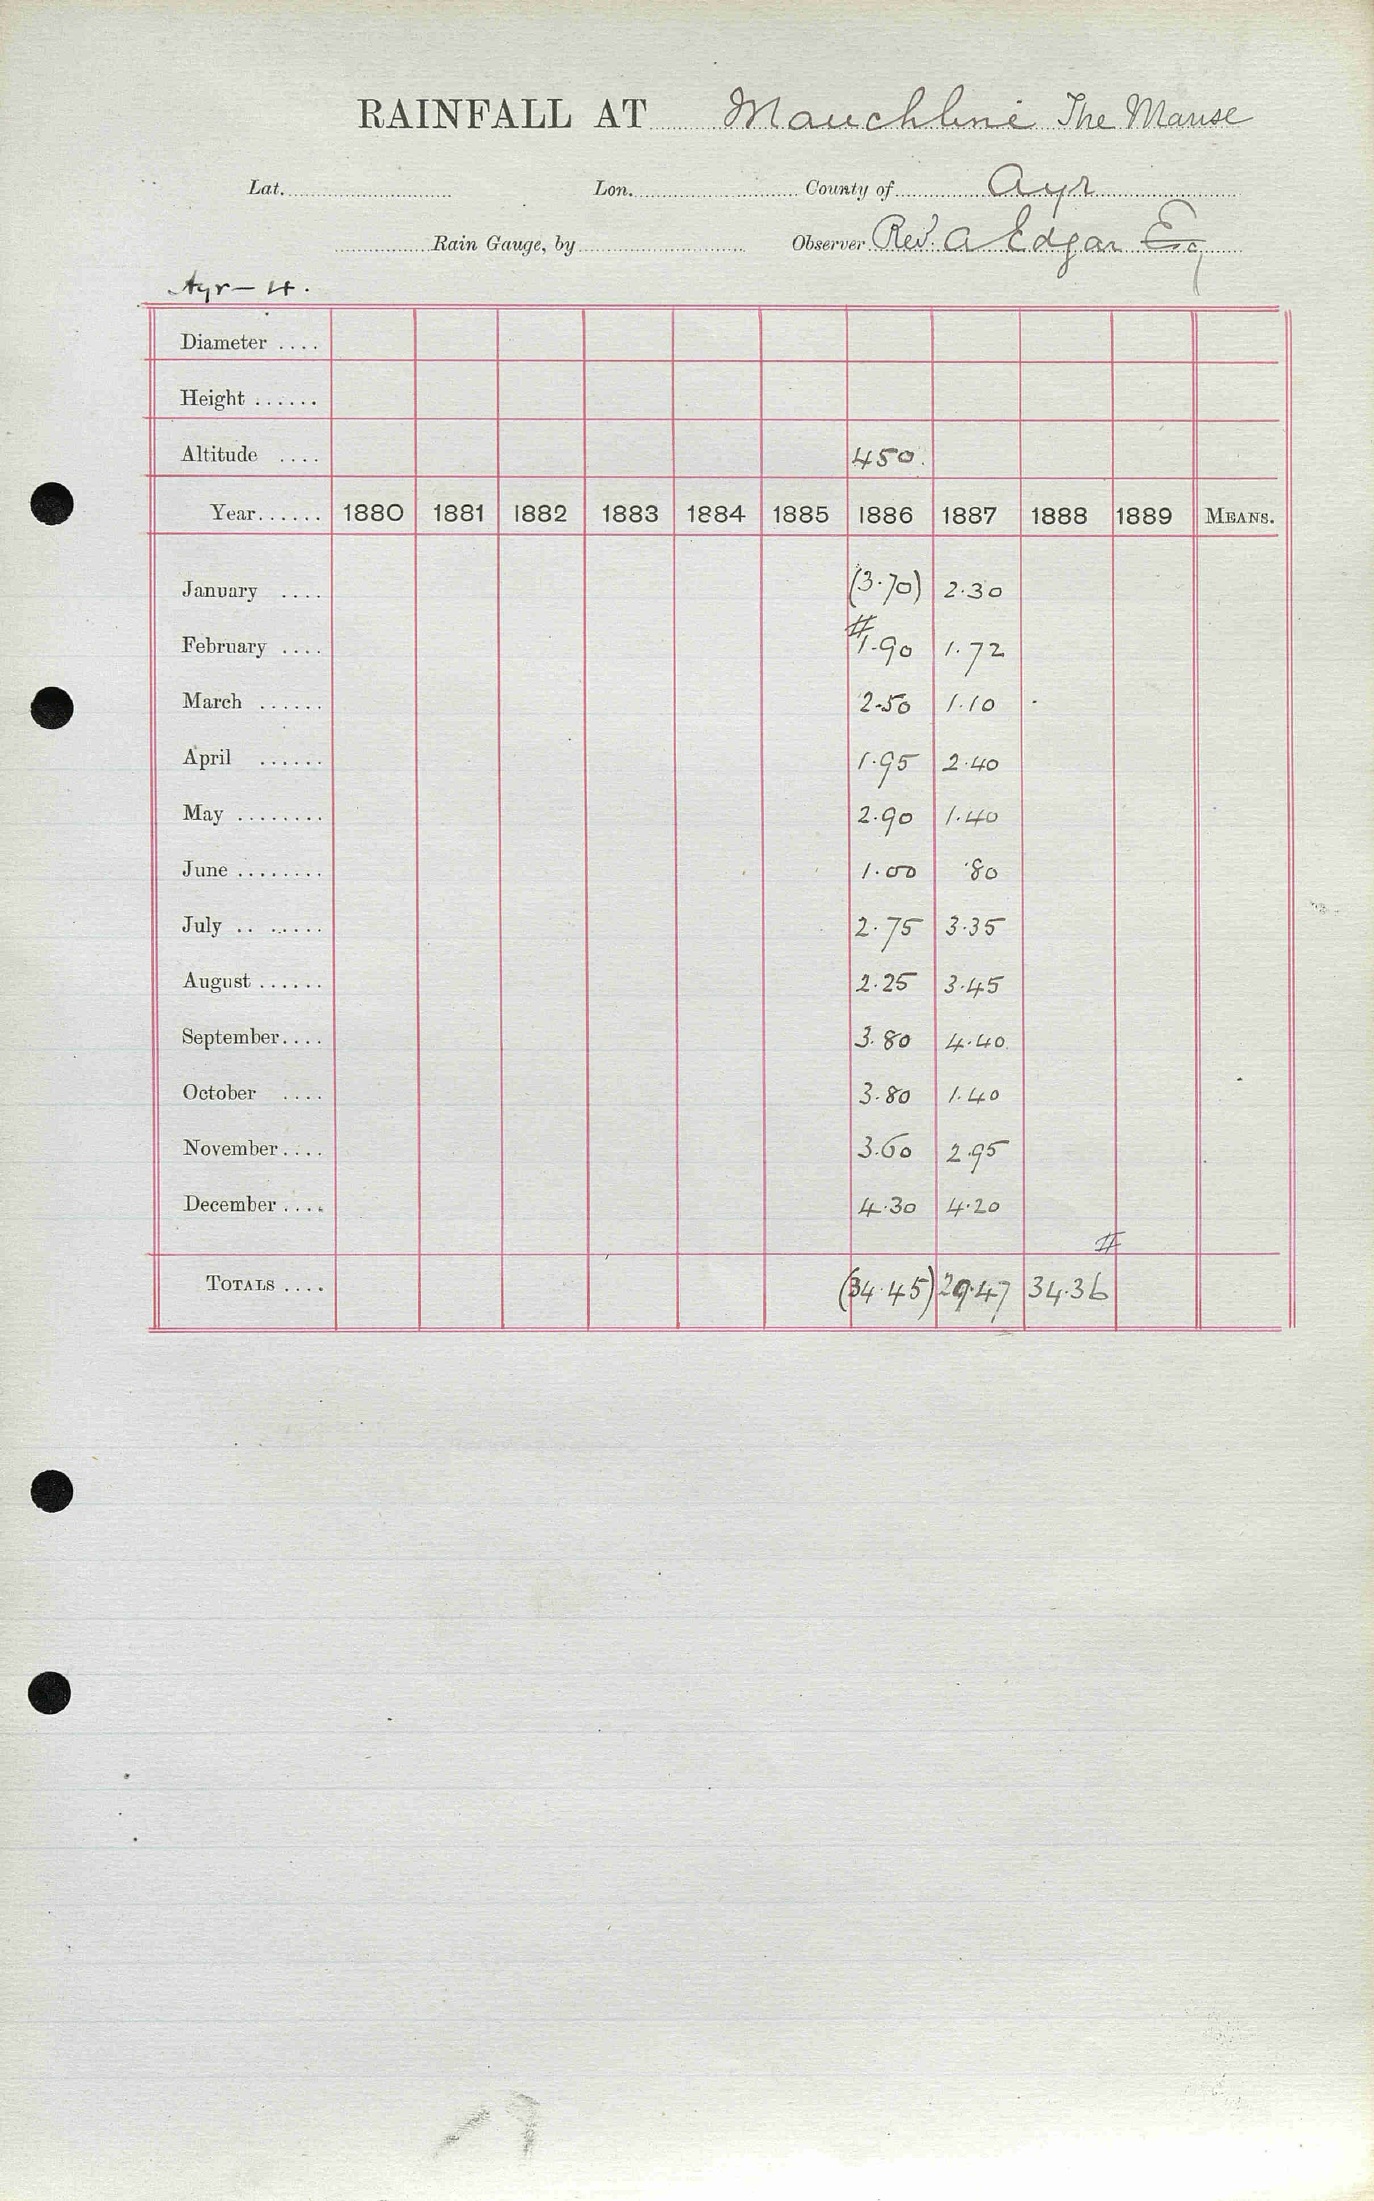 RAINFALL AT Mauchline The Manse
Lat. Lon. County of Ayr
Rain Gauge, by Observer Rev. A Edgar Esq
Ayr – 4.
Diameter ....
Height ......
Altitude .... 450.
Year...... 1880 1881 1882 1883 1884 1885 1886 1887 1888 1889 MEANS.
January .... (3.70) 2.30
February .... # 1.90 1.72
March ...... 2.50 1.10
April ...... 1.95 2.40
May ........ 2.90 1.40
June ........ 1.00 .80
July .. ...... 2.75 3.35
August ...... 2.25 3.45
September.... 3.80 4.40
October .... 3.80 1.40
November.... 3.60 2.95
December .... 4.30 4.20
#
TOTALS .... (34.45) 29.47 34.36